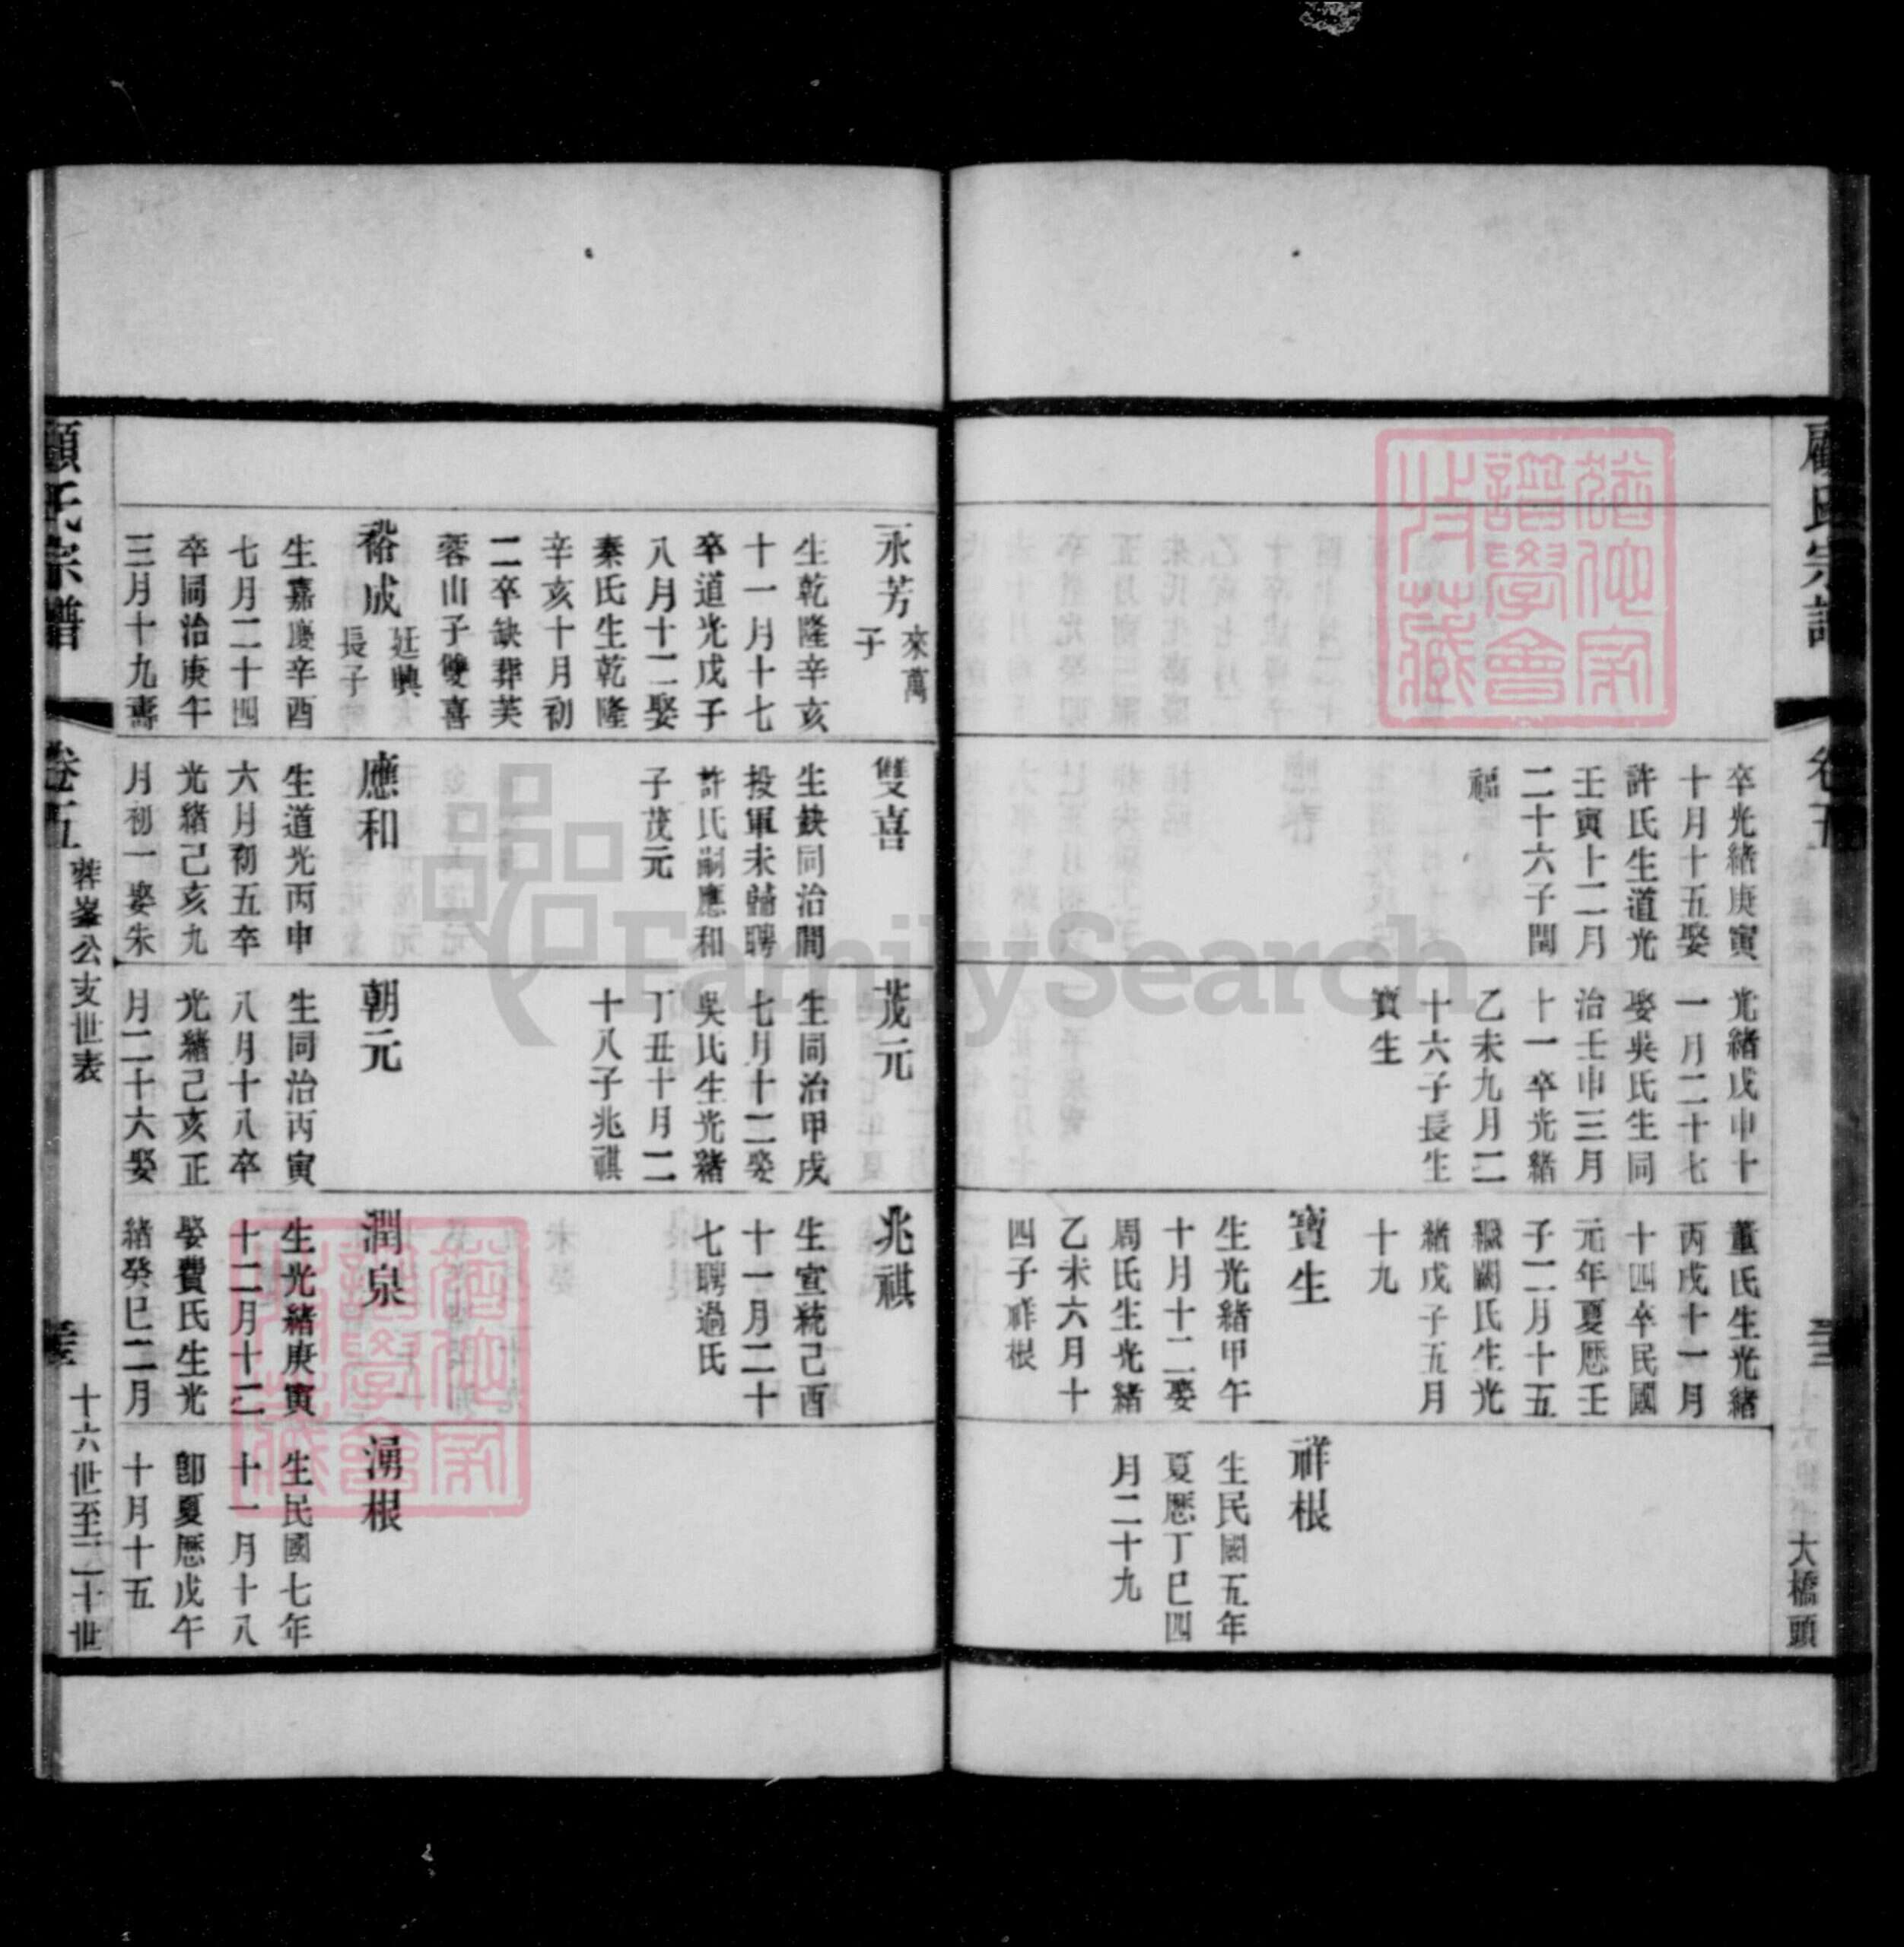 顧氏宗譜
卷五
大橋頭
卒光緒庚寅
十月十五娶
許氏生道光
壬寅十二月
二十六子閏
福
光緒戊申十
一月二十七
娶吳氏生同
治壬申三月
十一卒光緒
乙未九月二
十六子長生
寶生
董氏生光緒
丙戌十一月
十四卒民國
元年夏厯壬
子二月十五
繼闕氏生光
緒戊子五月
十九
寶生
生光緒甲午
十月十二娶
周氏生光緒
乙未六月十
四子祥根
祥根
生民國五年
夏厯丁巳四
月二十九
永芳
來萬
子
生乾隆辛亥
十一月十七
卒道光戊子
八月十二娶
秦氏生乾隆
辛亥十月初
二卒缺葬芙
蓉山子雙喜
裕成
廷興
長子
生嘉慶辛酉
七月二十四
卒同治庚午
三月十九壽
雙喜
生缺同治間
投軍未歸聘
許氏嗣應和
子茂元
應和
生道光丙申
六月初五卒
光緒己亥九
月初一娶朱
茂元
生同治甲戌
七月十二娶
吳氏生光緒
丁丑十月二
十八子兆祺
朝元
生同治丙寅
八月十八卒
光緒己亥正
月二十六娶
兆祺
生宣統己酉
十一月二十
七聘過氏
潤泉
生光緒庚寅
十二月十二
娶費氏生光
緒癸巳二月
湧根
生民國七年
十一月十八
卽夏厯戊午
十月十五
顧氏宗譜
卷五
蓉峯公支世表
十六世至二十世
FamilySearch